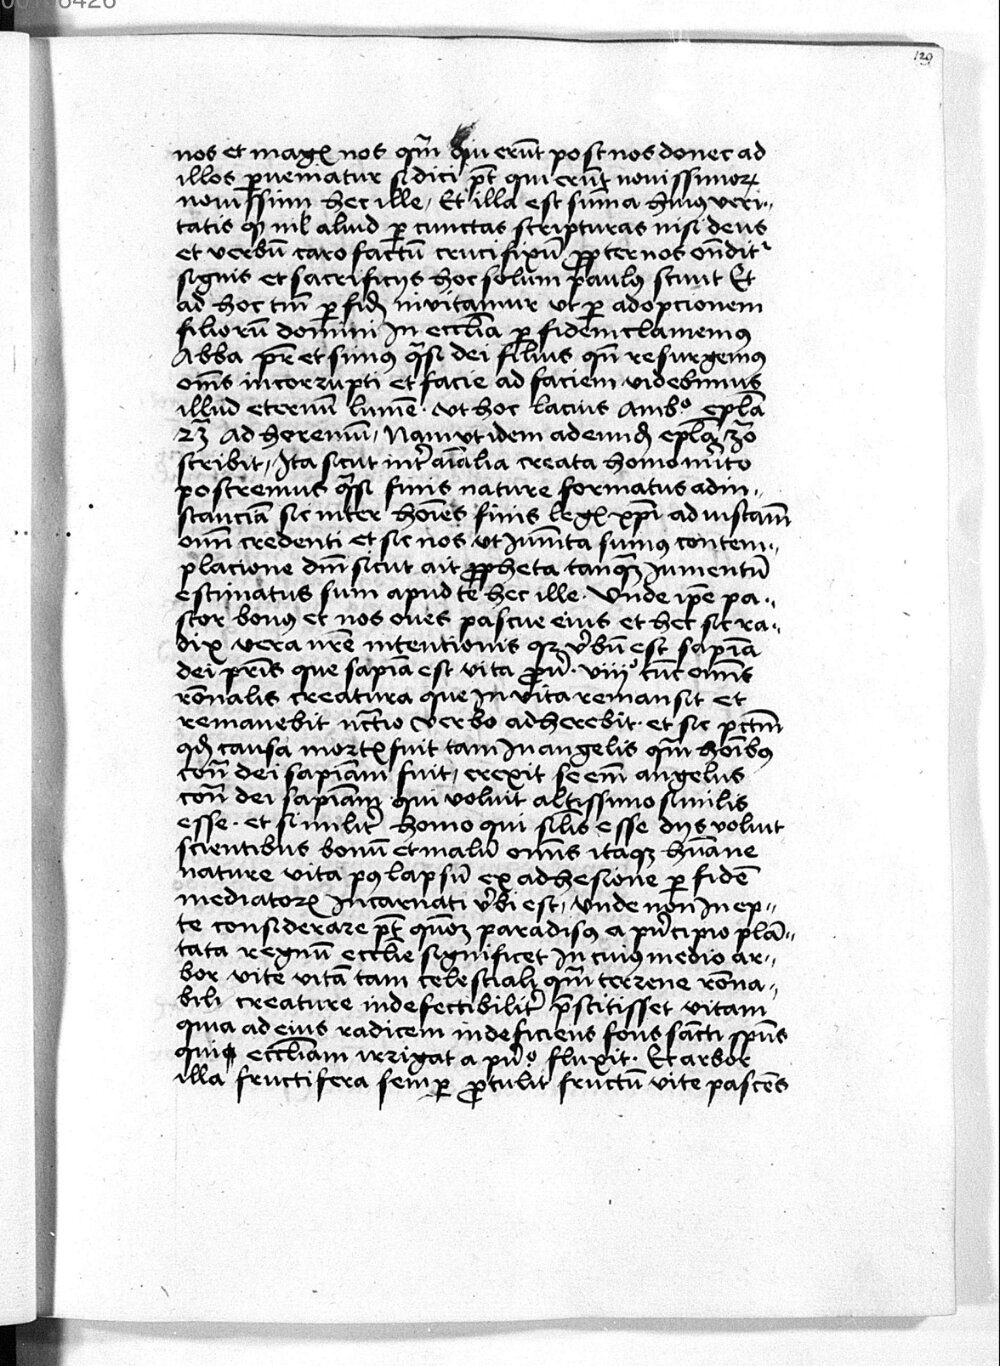 129
nos et magꝭ nos qm̄ qui erūt post nos donec ad
illos ꝑueniatur si dici pt̄ qui erūt nouissimoꝝ
nouissimi hec ille, Et illa est sum̄a huiꝰ veri-
tatis qꝫ nil aliud ꝑ cunctas scripturas nisi deus
et verbū caro factū crucifixū ꝓpter nos ondit᷑
signis et sacrificijs hoc solum paulꝰ sciuit Et
ad hoc tm̄ ꝑ fidē inuitamur vt ꝑ adopcionem
filiorū domini In eccl̄ia ꝑ fidem clamemꝰ
Abba pr̄ et simꝰ qͣsi dei filius qn̄ resurgemꝰ
om̄s incorrupti et facie ad faciem videbimus
illud eternū lumē. vt hoc lacius Ambꝰ ep̄la
23 ad hereniū, Nam vt idem ad eundē ep̄la
scribit, Ita sicut int̄ aīalia creata homo m̄ito
postremus qͣsi finis nature formatus ad in-
stanciā sic inter hoīes finis legꝭ xp̄i ad iusticiam
om̄i credenti et sic nos vt Jum̄ta sumꝰ contem-
placione dīni sicut ait ꝓpheta tanqꝫ Jumentū
estimatus sum apud te hec ille. Vnde ip̄e pa-
stor bonꝰ et nos oues pascue eius et hec sit ra-
dix vera nr̄e intentionis qꝫ v̄bū est sapīa
dei pr̄is que sapīa est vita ꝓū. viijͦ tūc om̄is
rōnalis creatura que In vita remansit et
remanebit verbo adherebit. et sic pctm̄
qd̄ causa mortꝭ fuit tam In angelis qm̄ hoībꝰ
cont̄ dei sapīam fuit, erexit se em̄ angelus
cont̄ dei sapīam qui voluit altissimo similis
esse. et similit̄ homo qui sil̄is esse dijs voluit
scientibus bonū et malū om̄is itaqꝫ hūane
nature vita pꝰ lapsū ex adhesione ꝑ fidē
mediatorꝭ Incarnati v̄bi est, vnde non Inep-
te considerare pt̄ quōꝫ paradisꝰ a pͥncipio plā-
tata regnū eccl̄ie significet In cuiꝰ medio ar-
bor vite vitā tam celestiali qm̄ terrene rōna-
bili creature indefectibilit̄ p̄stitisset vitam
quia ad eius radicem indeficiens fons sāncti sp̄us
qui eccl̄iam irrigat a pͥnͦ fluxit. Et arbor
illa fructifera semꝑ ꝓtulit fructū vite pascēs